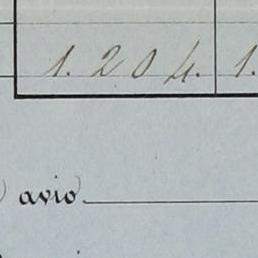 1. 2 0 4. 1.
avio